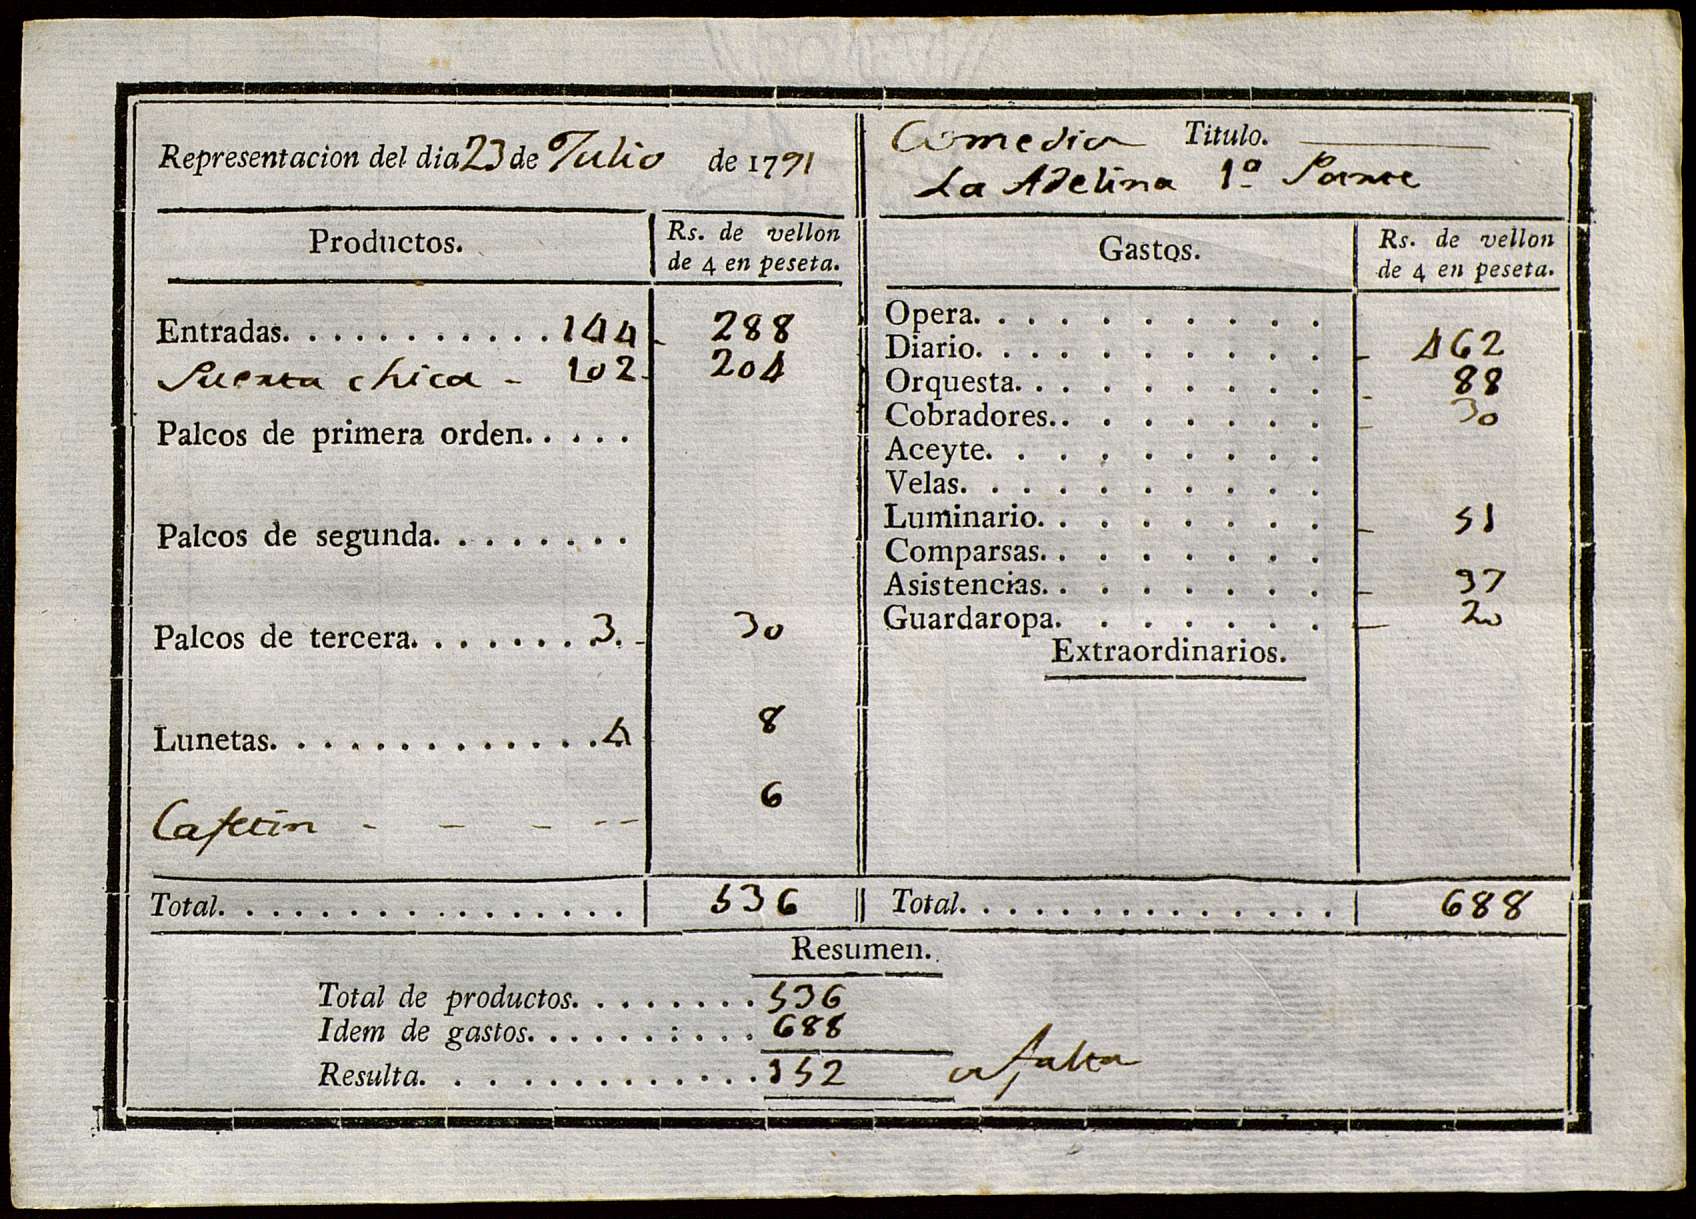 Representacion del dia 23 de Julio de 1791
Productos. Rs. de vellon de 4 en peseta.
Entradas. . . . . . . . . . . 144 288
Puerta chica - 102 204
Palcos de primera orden. . . . .
Palcos de segunda. . . . . . . .
Palcos de tercera. . . . . . . 3. 30
Lunetas. . . . . . . . . . . . . 4 8
Cafetin - - - - - 6
Total. . . . . . . . . . . . . . . . 536
Comedia Titulo.
La Adelina 1ª Parte
Gastos. Rs. de vellon de 4 en peseta.
Opera. . . . . . . . . .
Diario. . . . . . . . . . 462
Orquesta. . . . . . . . . 88
Cobradores. . . . . . . . 30
Aceyte. . . . . . . . .
Velas. . . . . . . . . .
Luminario. . . . . . . . 51
Comparsas. . . . . . . .
Asistencias. . . . . . . . 37
Guardaropa. . . . . . . 20
Extraordinarios.
Total. . . . . . . . . . . . . . . 688
Resumen.
Total de productos. . . . . . . . 536
Idem de gastos. . . . . . : . . . 688
Resulta. . . . . . . . . . . . . 152 a falta